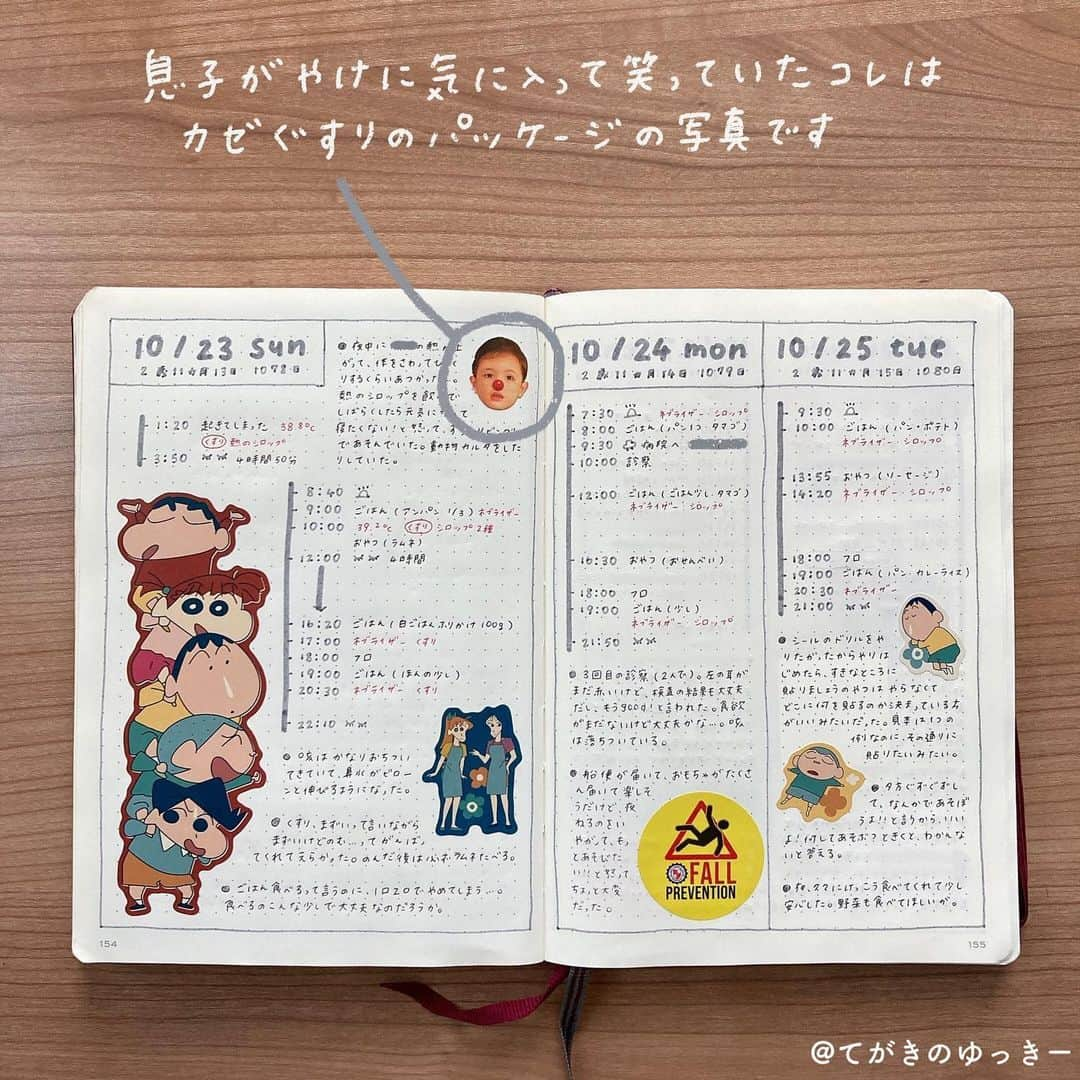 息子がやけに気に入って笑っていたコレは
カゼぐすりのパッケージの写真です
10/23 sun
2歳11ヵ月13日 1078日
1:20 起きてしまった 38.8℃
くすり 熱のシロップ
3:50 4時間50分
夜中に の熱
がって、体をさわってび
りするくらいあつかった。
熱のシロップを飲
しばらくしたら元気に
寝たくない!と怒って、
であそんでいた。動物カルタをした
りしていた。
8:40
9:00 ごはん(アンパン 1/3) ネブライザー
10:00 39.2℃ くすり シロップ2種
おやつ(ラムネ)
12:00 4時間
16:20 ごはん(白ごはんふりかけ100g)
17:00 ネブライザー くすり
18:00 フロ
19:00 ごはん(ほんの少し)
20:30 ネブライザー くすり
22:10
咳はかなりおちつい
てきていて、鼻水がビロー
ンと伸びるようになった。
くすり、まずいって言いながら
まずいけどのむ…ってがんば
てくれてえらかった。のんだ後は必ずラムネたべる。
ごはん食べるって言うのに、1口2口でやめてしまう…。
食べるのこんな少しで大丈夫なのだろうか。
154
10/24 mon
2歳11ヵ月14日 1079日
7:30 ネブライザー シロップ
8:00 ごはん(パン1コ・タマゴ)
9:30 病院へ
10:00 診察
12:00 ごはん(ごはん少し、タマゴ)
ネブライザー・シロップ
16:30 おやつ(おせんべい)
18:00 フロ
19:00 ごはん(少し)
ネブライザー・シロップ
21:50
3回目の診察(2人で)。左の耳が
まだ赤いけど、検査の結果も大丈夫
だし、もうgood!と言われた。食欲
がまだないけど大丈夫かな…。咳
は落ちついている。
船便が届いて、おもちゃがたくさ
ん届いて楽しそ
うだけど、夜
ねるのをい
やがって、もっ
とあそびた
い!!と怒って
ちょっと大変
だった。
FALL
PREVENTION
10/25 tue
2歳11ヵ月15日 1080日
9:30
10:00 ごはん(パン・ポテト)
ネブライザー・シロップ
13:55 おやつ(ソーセージ)
14:20 ネブライザー・シロップ
18:00 フロ
19:00 ごはん(パン・カレーライス)
20:30 ネブライザー
21:00
シールのドリルをや
りたがったからやりは
じめたら、すきなところに
貼りましょうのやつはやらなくて
どこに何を貼るのか決まっている方
がいいみたいだった。見本は1つの
例なのに、その通りに
貼りたいみたい。
夕方ぐずぐずし
て、なんかであそぼ
うよ!!と言うから、いい
よ!何してあそぶ?ときくと、わかんな
いと答える。
夕食、けっこう食べてくれて少し
安心した。野菜も食べてほしいが。
155
@てがきのゆっきー